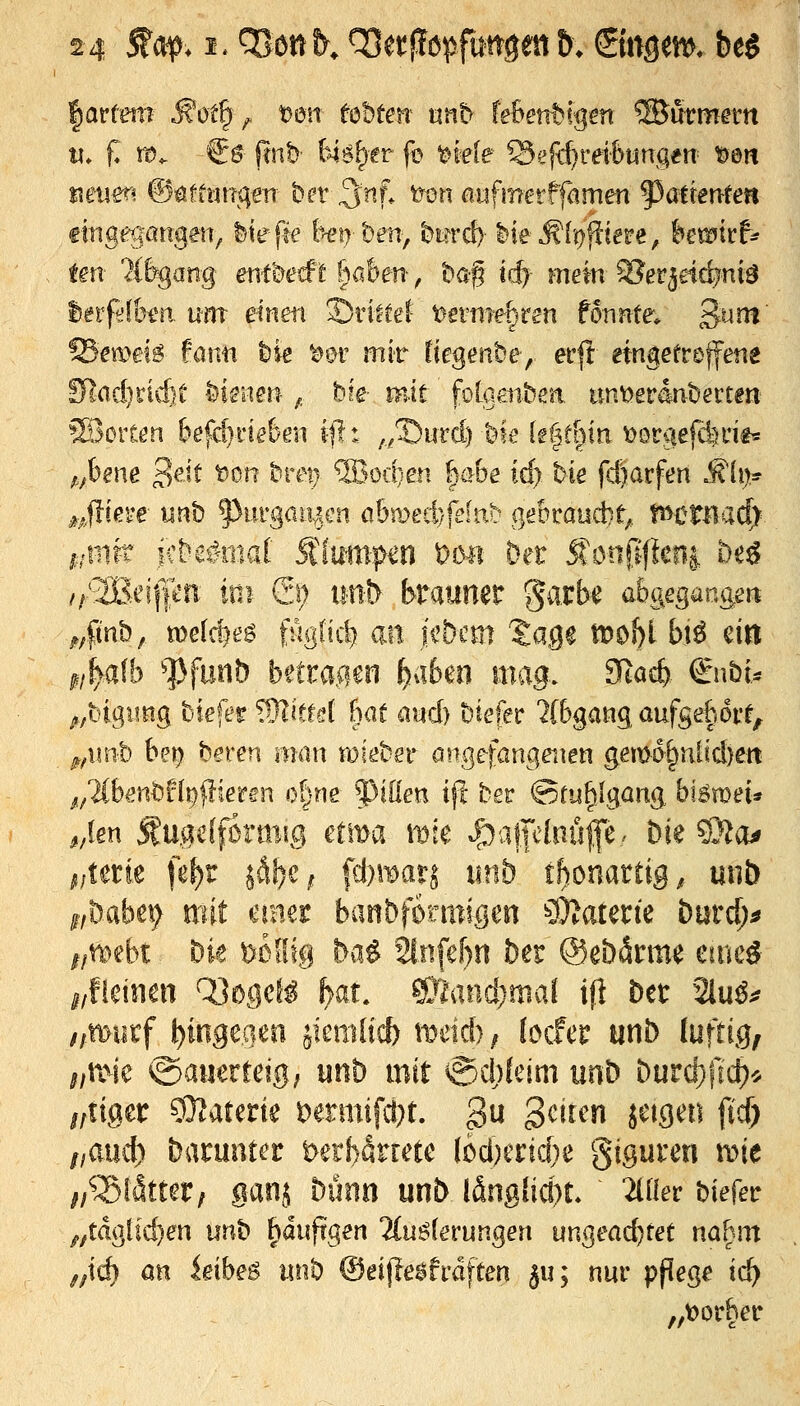 24 Kap. 1. Von d. Verstopfungen d. Eingew. des
hartem Koth, von todten und lebendigen Würmern
u. s. w. Es sind bisher so viele Beschreibungen von
neuen Gattungen der Inf. von aufmerksamen Patienten
eingegangen, die sie bey den, durch die Klystiere, bewirk-
ten Abgang entdeckt haben, daß ich mein Verzeichniß
derselben um einen Drittel vermehren könnte. Zum
Beweis kann die vor mir liegende, erst eingetroffene
Nachricht dienen, die mit folgenden unveränderten
Worten beschrieben ist: „Durch die letzthin vorgeschrie-
„bene Zeit von drey Wochen habe ich die scharfen Kly-
„stiere und Purganzen abwechselnd gebraucht, wornach
„mir jedesmal Klumpen von der Konsistenz des
„Weissen im Ey und brauner Farbe abgegangen
„sind, welches füglich an jedem Tage wohl bis ein
„halb Pfund betragen haben mag. Nach Endi-
„digung dieser Mittel hat auch dieser Abgang aufgehört,
„und bey deren man wieder angefangenen gewöhnlichen
„Abendklystieren ohne Pillen ist der Stuhlgang biswei-
„len Kugelförmig etwa wie Haselnüsse, die Ma-
„terie sehr zähe, schwarz und thonartig, und
„dabey mit einer bandförmigen Materie durch-
„webt die völlig das Ansehn der Gedärme eines
„kleinen Vogels hat. Manchmal ist der Aus-
„wurf hingegen ziemlich weich, locker und luftig,
„wie Sauerteig, und mit Schleim und durchsich-
„tiger Materie vermischt. Zu Zeiten zeigen sich
„auch darunter verhärrete löcheriche Figuren wie
„Blätter, ganz dünn und länglicht. Aller dieser
„täglichen und häufigen Ausleerungen ungeachtet nahm
„ich an Leibes und Geisteskräften zu; nur pflege ich
„vorher